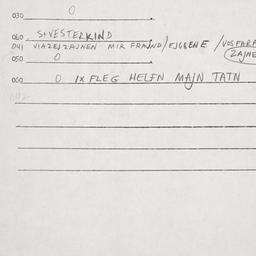 030 O
040 SHVESTERKIND
041 VIAZEJZAJNEN MIR FRAJND/EJGGENE /VOS FARA
ZAJNE
050 O
060 O IX FLEG HELFN MAJN TATN